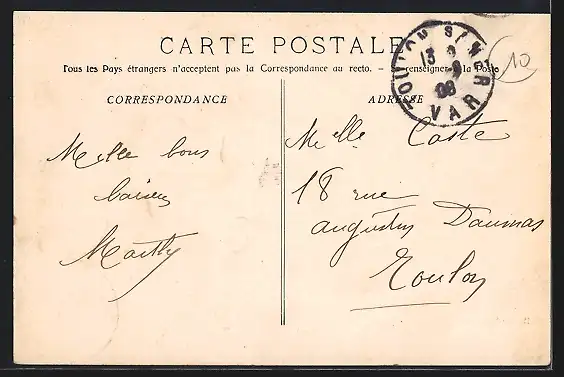 CARTE POSTALE
Tous les Pays étrangers n'acceptent pas la Correspondance au recto. – Se renseigner à la Poste
CORRESPONDANCE
ADRESSE
TOULON Sr MER
13
9
08
VAR
10
Mille bons
baisers
Melle Coste
18 rue
augustin Daumas
Toulon